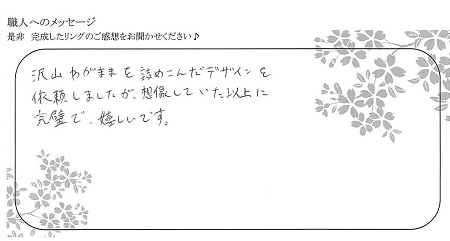 職人へのメッセージ
是非 完成したリングのご感想をお聞かせください♪
沢山わがままを詰めこんだデザインを
依頼しましたが、想像していた以上に
完璧で、嬉しいです。